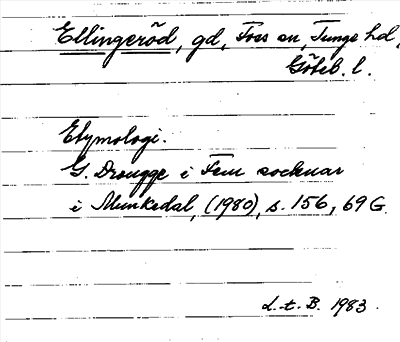 Ellingeröd, gd, Foss sn, Tunge hd,
Göteb. l.
Etymologi.
G. Drougge i Fem socknar
i Munkedal, (1980), s. 156, 69 G.
L.t.B. 1983.